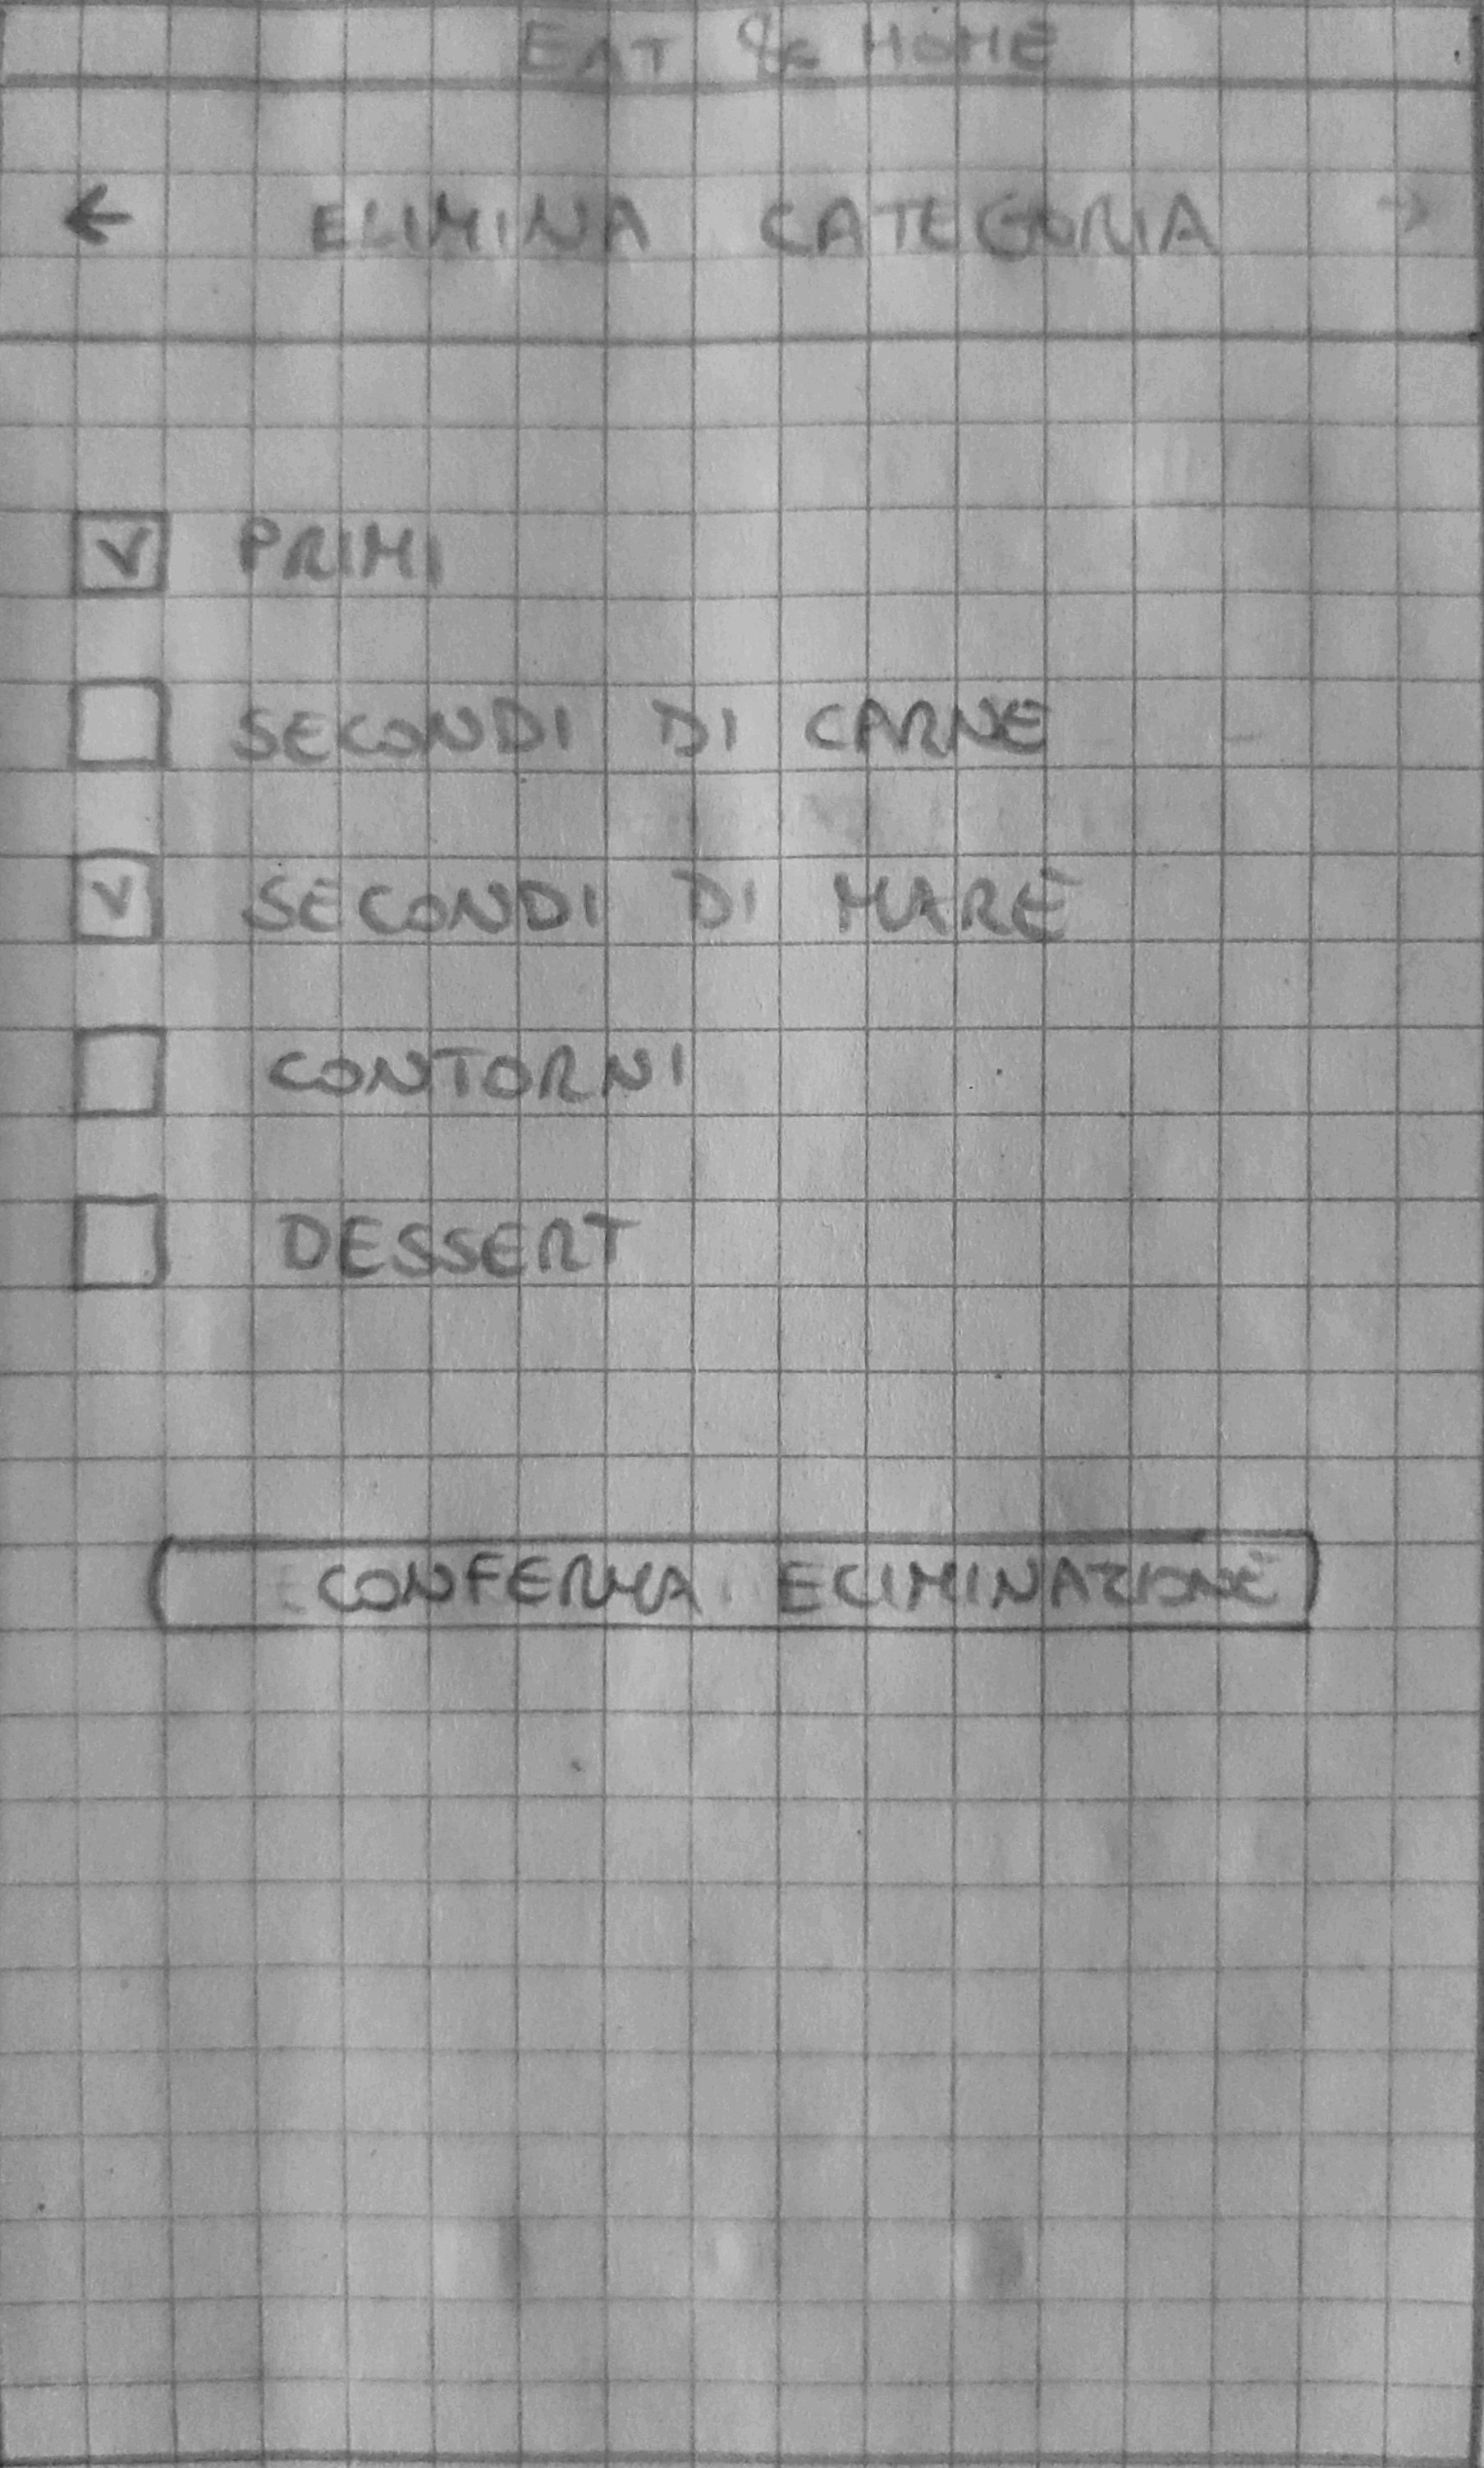 EAT & HOME
← ELIMINA CATEGORIA →
PRIMI
SECONDI DI CARNE
SECONDI DI MARE
CONTORNI
DESSERT
CONFERMA ELIMINAZIONE